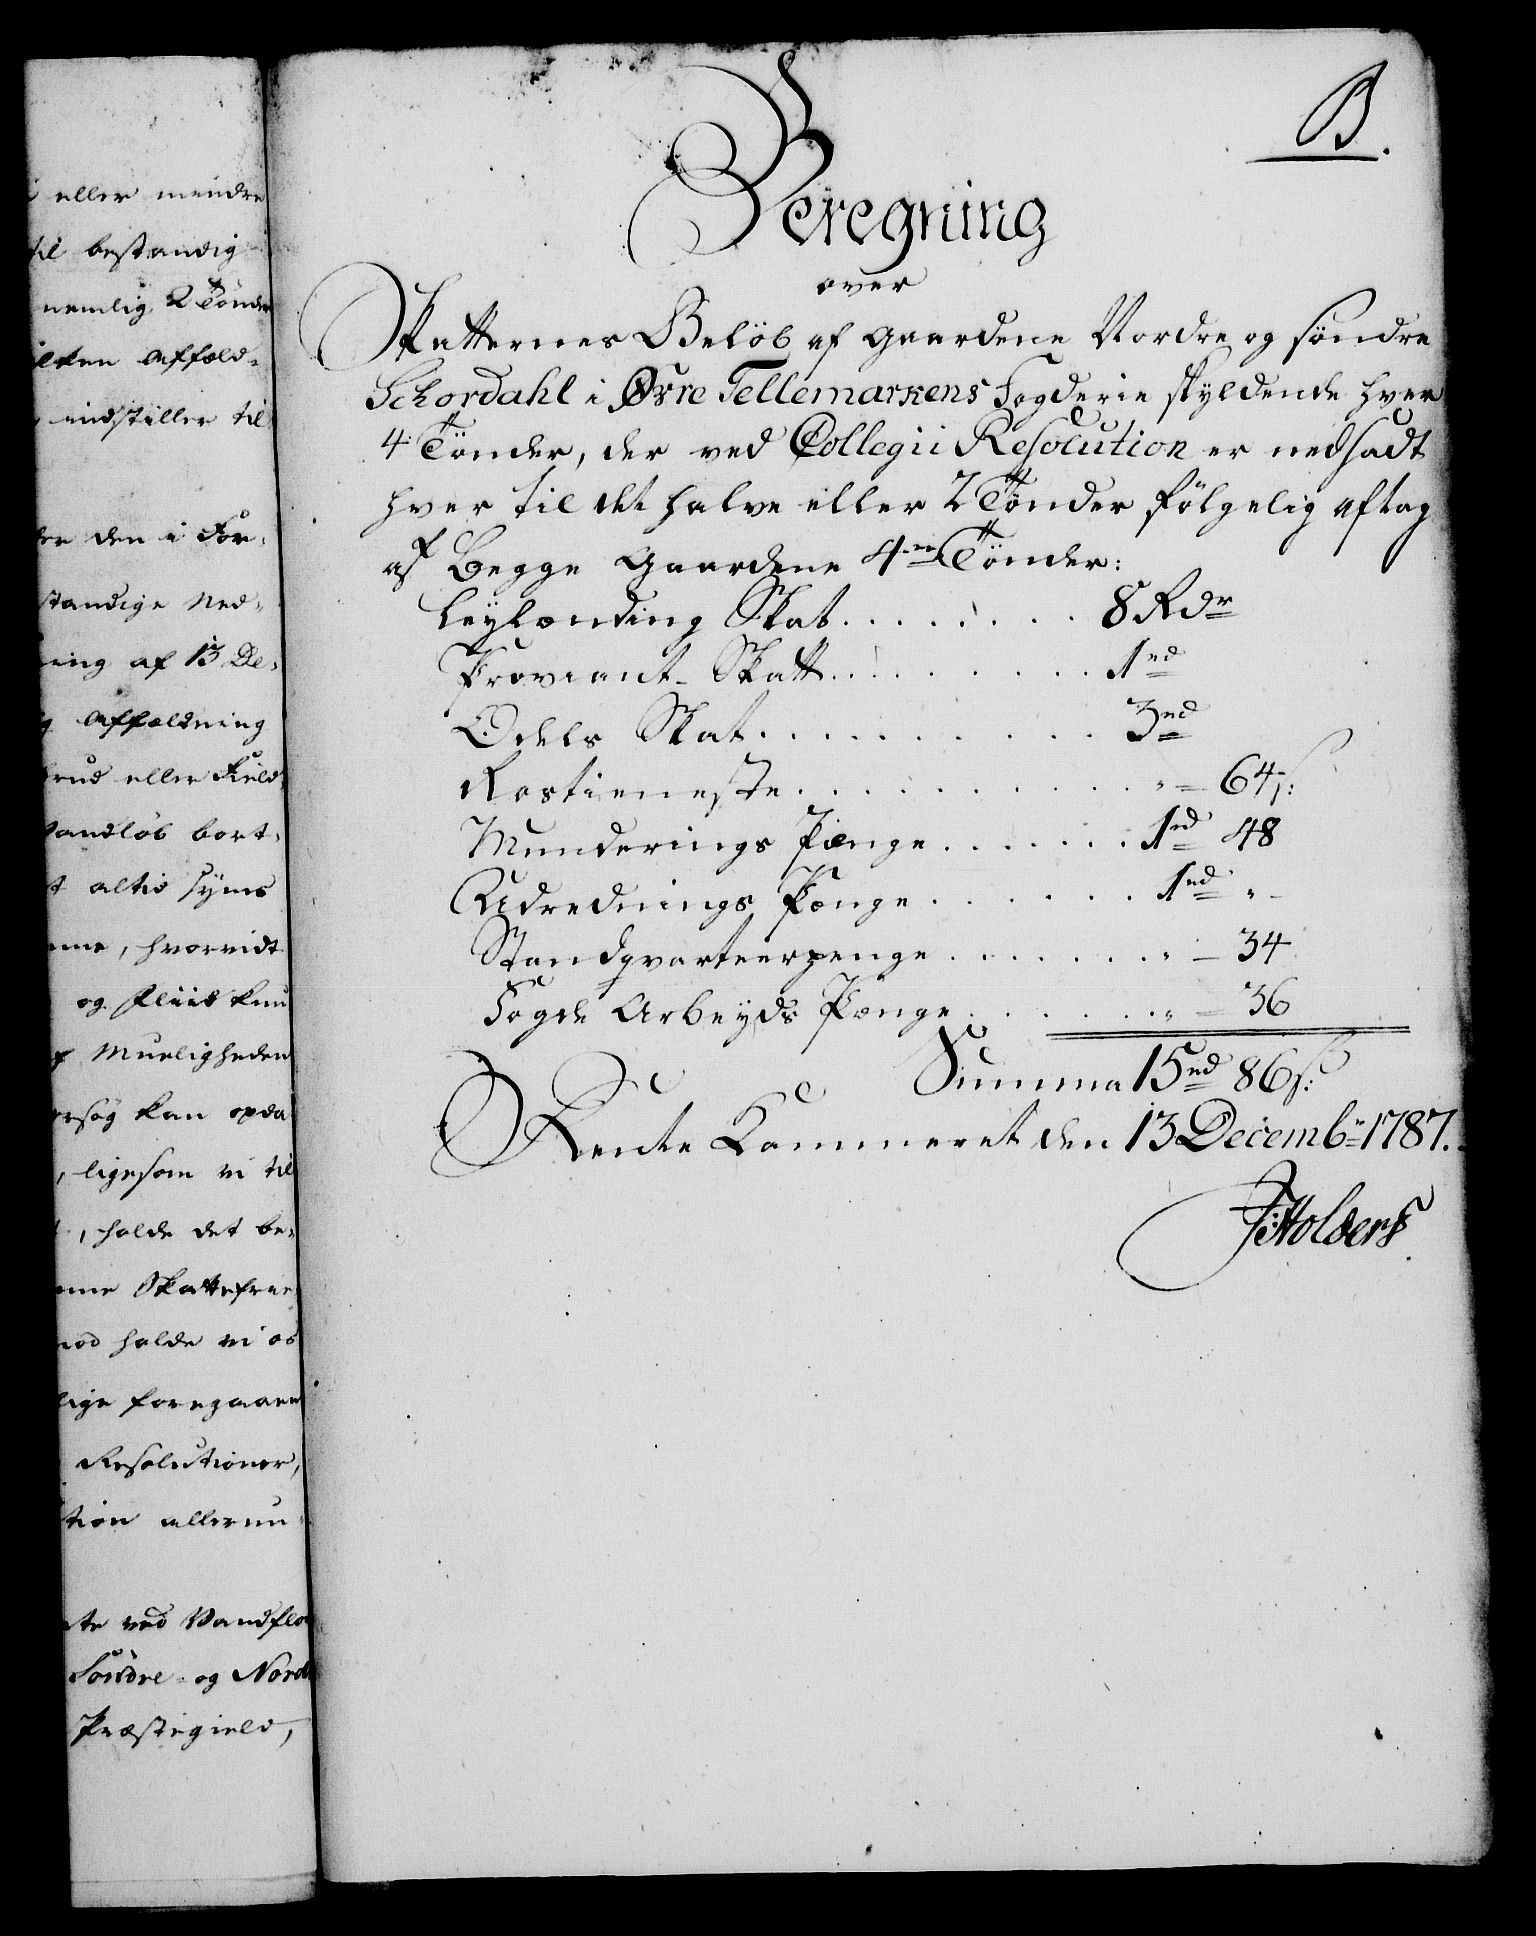 eller mindre
til bestandig
nemlig 2 Tönder
Affæld-
indstiller til
den i For-
standige Ned-
ning af 13 De-
Affældning
brud eller Field-
Vandlöb bort-
altid synes
hvorvidt
og Fliid kun
Mueligheden
kan opda
, ligesom vi til
, holde det be-
Skattefrie
mod holde vi os
lige foregaaen
Resolutioner,
tion allerun-
ved Vandflo
Söndre- og Nord
Præstegield,
B.
Beregning
over
Skatternes Belöb af Gaardene Nordre og söndre
Schordahl i Øvre Tellemarkens Fogderie skyldende hver
4 Tönder, der ved Collegii Resolution er nedsadt
hver til det halve eller 2 Tönder fölgelig aftag
af Begge Gaardene 4re Tönder:
Leylænding Skat........ 8 Rdr
Proviant- Skatt......... 1rd
Odels Skat.......... 3rd
Rostieneste........... " - 64 s:
Munderings Penge....... 1rd 48
Udrednings Penge...... 1rd " -
Standqvarteerpenge....... " - 34
Fogde Arbeyds Penge....... " - 36
Summa 15rd 86 s:
Rente Kammeret den 13 Decembr 1787.
F: Holders